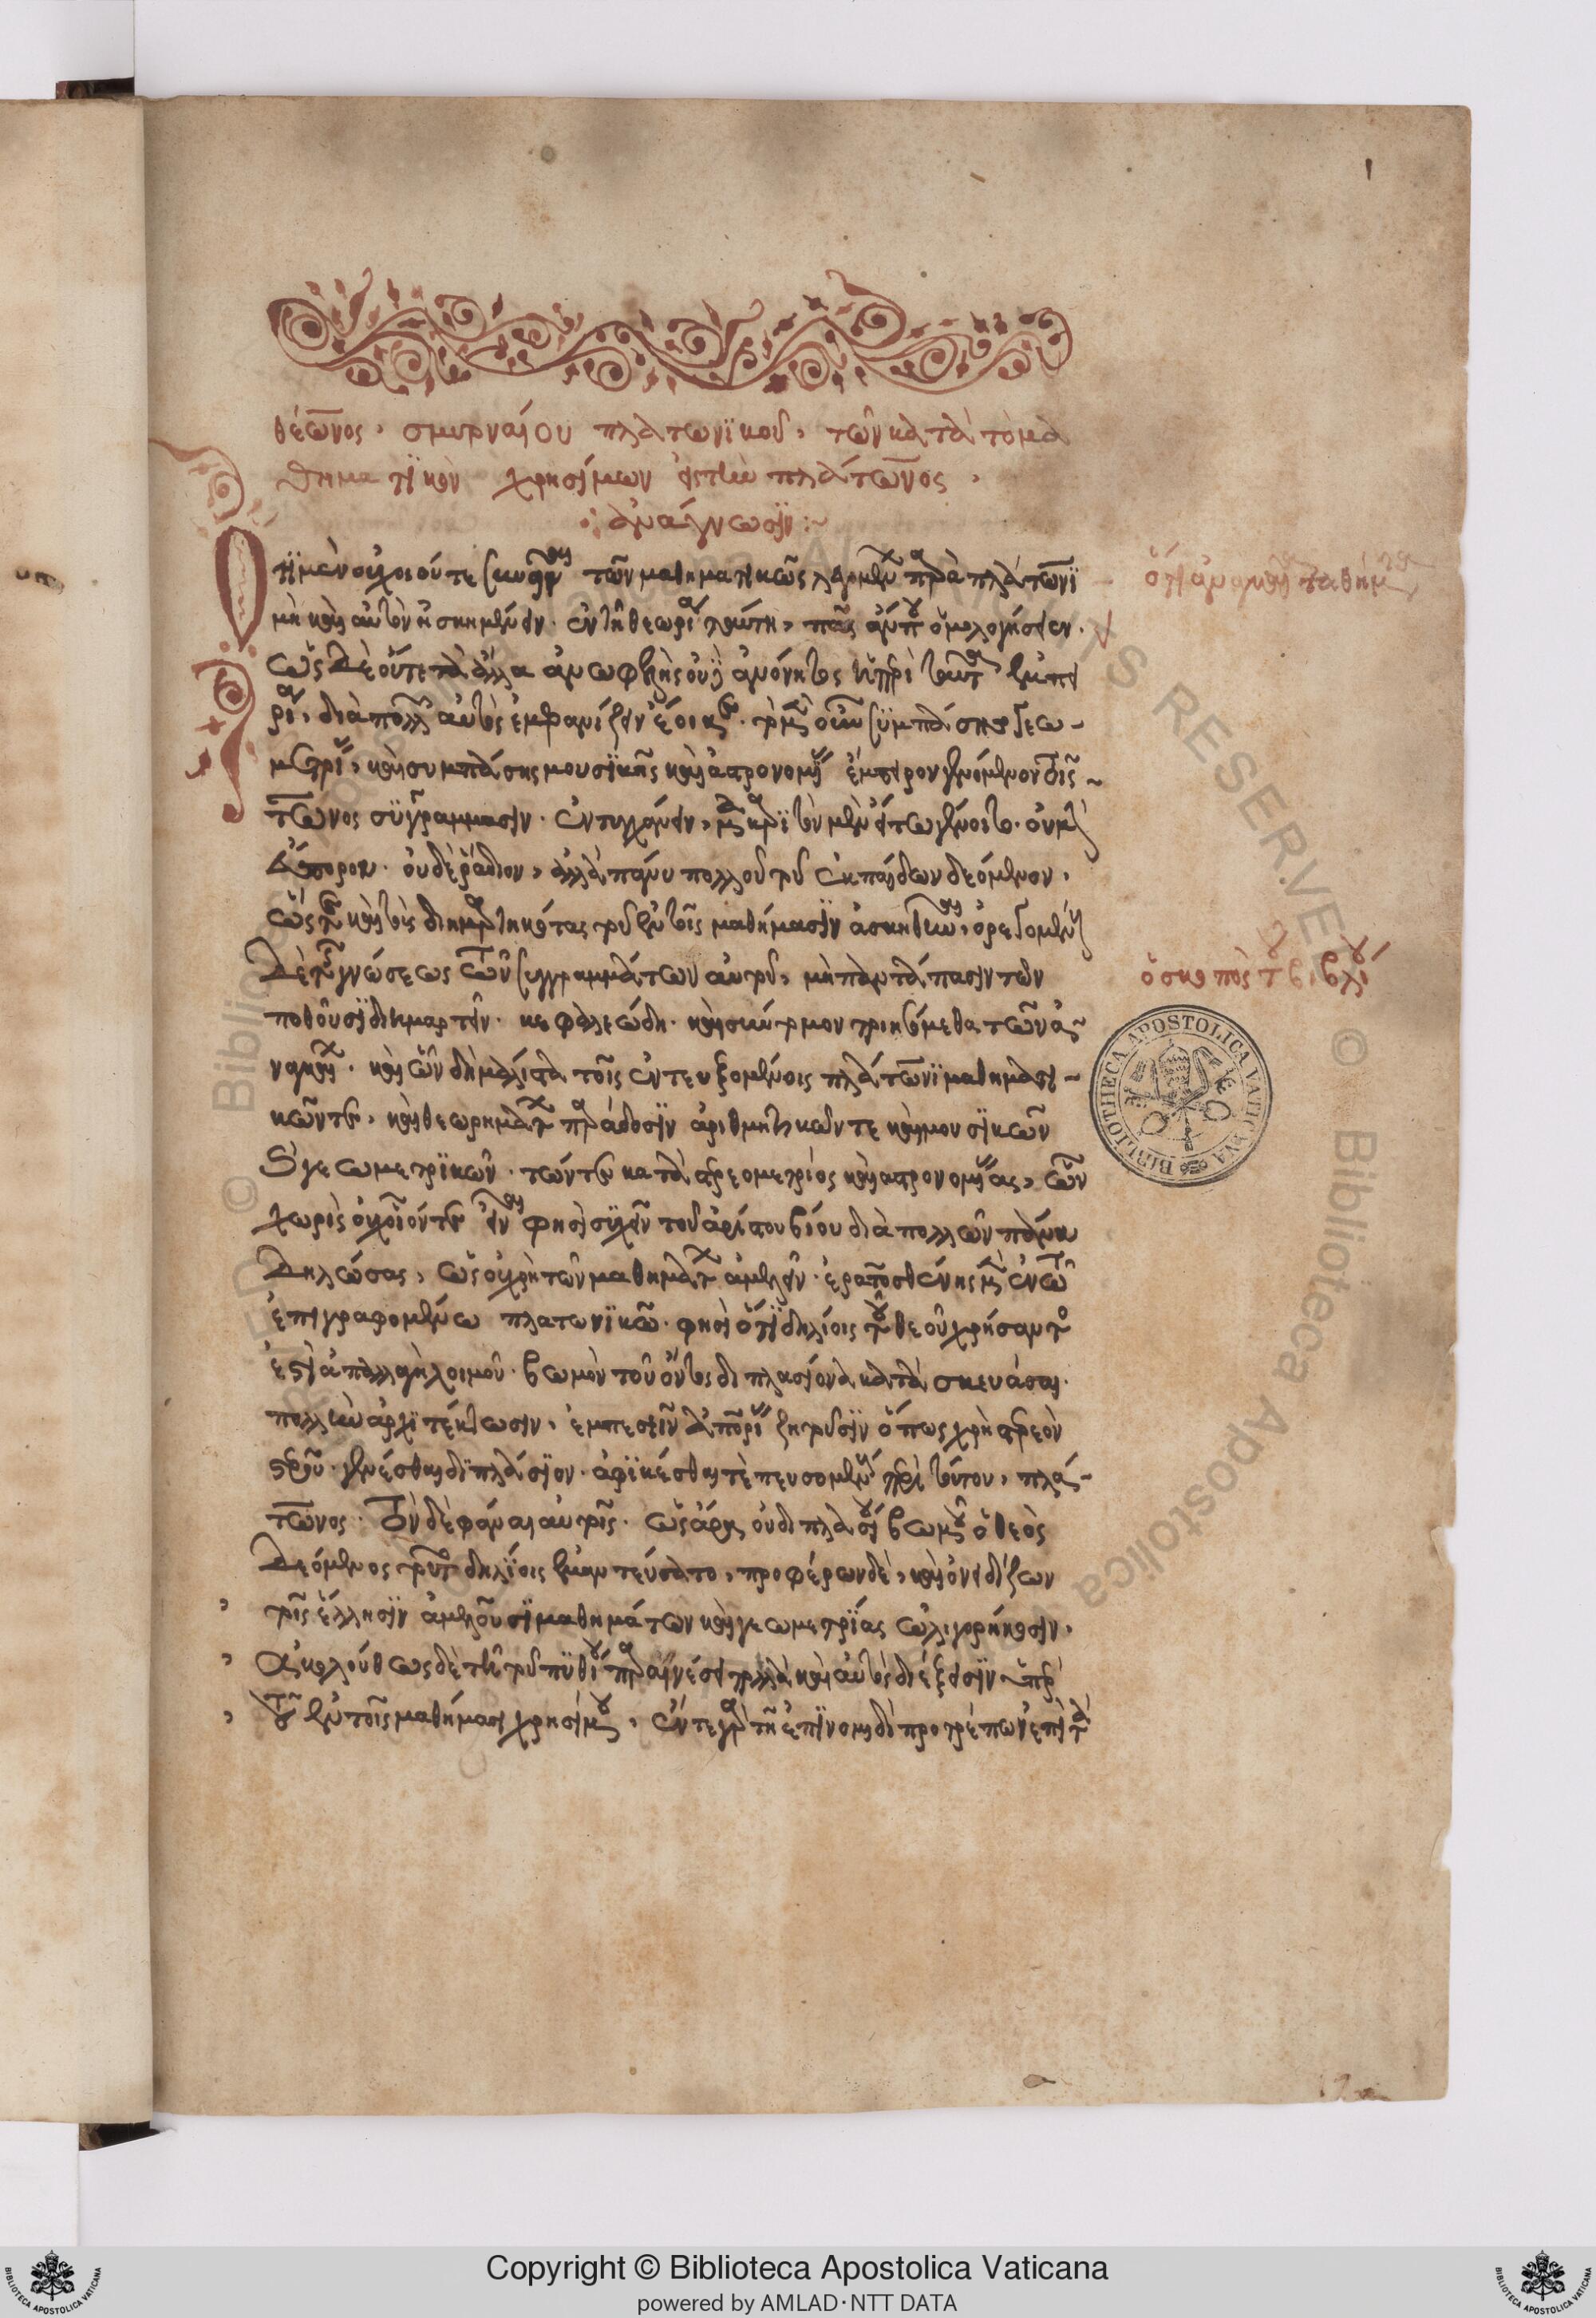 1
θέωνος, σμυρναίου πλατωνικοῦ, τῶν κατὰ τὸ μα
θηματικὸν χρησίμων εἰς τὴν πλάτωνος,
ἀνάγνωσιν:~
Ὅτι μὲν οὐχ οἷόν τε συνεῖναι τῶν μαθηματικῶς λεγομένων παρὰ πλάτωνι
μὴ καὶ αὐτὸν ἠσκημένον ἐν τῇ θεωρίᾳ ταύτῃ, πᾶς ἄν που ὁμολογήσειεν.
ὡς δὲ οὔτε τὰ ἄλλα ἀνωφελὴς οὐδὲ ἀνόνητος ἡ περὶ ταῦτα ἐμπει
ρία, διὰ πολλῶν αὐτὸς ἐμφανίζειν ἔοικε. τὸ μὲν οὖν συμπάσης γεω
μετρίας, καὶ συμπάσης μουσικῆς καὶ ἀστρονομίας ἔμπειρον γενόμενον τοῖς
πλάτωνος συγγράμμασιν ἐντυγχάνειν, μακαριστὸν μὲν εἴ τῳ γένοιτο. οὐ μὴν
εὔπορον οὐδὲ ῥᾴδιον, ἀλλὰ πάνυ πολλοῦ τοῦ ἐκ παίδων δεόμενον,
ὥστε καὶ τοὺς διημαρτηκότας τοῦ ἐν τοῖς μαθήμασιν ἀσκηθῆναι, ὀρεγομένους
δὲ τῆς γνώσεως τῶν συγγραμμάτων αὐτοῦ, μὴ παντάπασιν ὧν
ποθοῦσι διαμαρτεῖν. κεφαλαιώδη καὶ σύντομον ποιησόμεθα τῶν ἀ
ναγκαίων καὶ ὧν δεῖ μάλιστα τοῖς ἐντευξομένοις πλάτωνι μαθηματι
κῶν τε καὶ θεωρημάτων παράδοσιν ἀριθμητικῶν τε καὶ μουσικῶν
καὶ γεωμετρικῶν. τῶν τε κατὰ στερεομετρίας καὶ ἀστρονομίας, ὧν
χωρὶς οὐχ οἷόν τε εἶναι φησὶ τυχεῖν τοῦ ἀρίστου βίου διὰ πολλῶν πάνυ
δηλώσας, ὡς οὐ χρὴ τῶν μαθημάτων ἀμελεῖν. ἐρατοσθένης μὲν ἐν τῷ
ἐπιγραφομένῳ πλατωνικῷ φησὶ ὅτι δηλίοις τοῦ θεοῦ χρήσαντος
ἐπὶ ἀπαλλαγῇ λοιμοῦ. βωμὸν τοῦ ὄντος διπλασίονα κατασκευάσαι.
πολλὴν ἀρχιτέκτωσιν, ἐμπεσεῖν ἀπορίαν ζητοῦσιν ὅπως χρὴ στερεὸν
στερεοῦ γενέσθαι διπλάσιον. ἀφικέσθαι τε πευσομένους περὶ τούτου, πλά
τωνος. τὸν δὲ φάναι αὐτοῖς. ὡς ἄρα οὐ διπλασίου βωμοῦ ὁ θεὸς
δεόμενος τοῦτο δηλίοις ἐμαντεύσατο, προφέρων δὲ, καὶ ὀνειδίζων
τοῖς ἕλλησιν ἀμελοῦσι μαθημάτων καὶ γεωμετρίας ὠλιγωρηκόσιν.
ἀκολούθως δὲ τῇ τοῦ πυθίου παραινέσει πολλὰ καὶ αὐτὸς διέξεισιν ὑπὲρ
τοῦ ἐν τοῖς μαθήμασι χρησίμου. ἔν τε γὰρ τῇ ἐπινομίδι προτρέπων ἐπὶ τὰ
ὅτι ἀναγκαῖα τὰ
ὁ σκοπὸς τοῦ βιβλίου
BIBLIOTHECA APOSTOLICA VATICANA
Copyright © Biblioteca Apostolica Vaticana
powered by AMLAD·NTT DATA